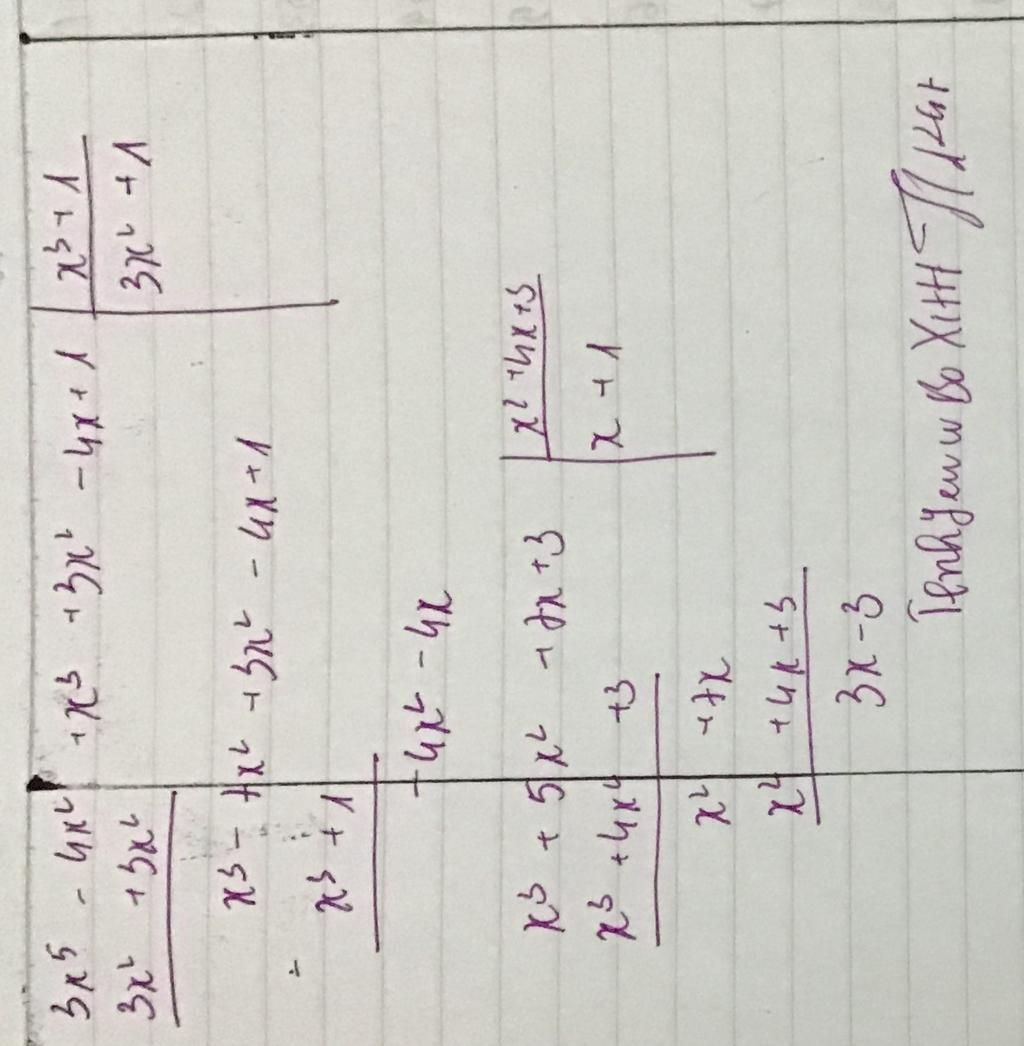 3x⁵ - 4x² + x³ + 3x² - 4x + 1 | x³ + 1
3x² + 3x² | 3x² + 1
x³ - 7x² + 3x² - 4x + 1
- x³ + 1
- 4x² - 4x
x³ + 5x² + 7x + 3 | x² + 4x + 3
x³ + 4x² + 3 | x + 1
x² + 7x
x² + 4x + 3
3x - 3